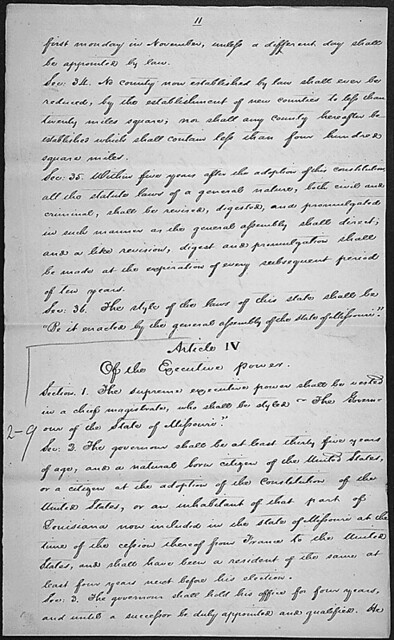 11
first monday in November, unless a different day shall
be appointed by law.
Sec. 34. No county now established by law shall ever be
reduced, by the establishment of new counties to less than
twenty miles square; nor shall any county hereafter be
established which shall contain less than four hundred
square miles.
Sec. 35. Within five years after the adoption of this constitution
all the statute laws of a general nature, both civil and
criminal, shall be revised, digested, and promulgated
in such manner as the general assembly shall direct;
and a like revision, digest and promulgation shall
be made at the expiration of every subsequent period
of ten years.
Sec. 36. The style of the laws of this state shall be
"Be it enacted by the general assembly of the state of Missouri."
Article IV
Of the Executive power.
Section. 1. The supreme executive power shall be vested
in a chief magistrate, who shall be styled "The Govern-
our of the State of Missouri."
2-9
Sec. 2. The governour shall be at least thirty five years
of age, and a natural born citizen of the United States,
or a citizen at the adoption of the Constitution of the
United States, or an inhabitant of that part of
Louisiana now included in the state of Missouri at the
time of the cession thereof from France to the United
States, and shall have been a resident of the same at
least four years next before his election.
Sec. 3. The governour shall hold his office for four years,
and until a successor be duly appointed and qualified. He